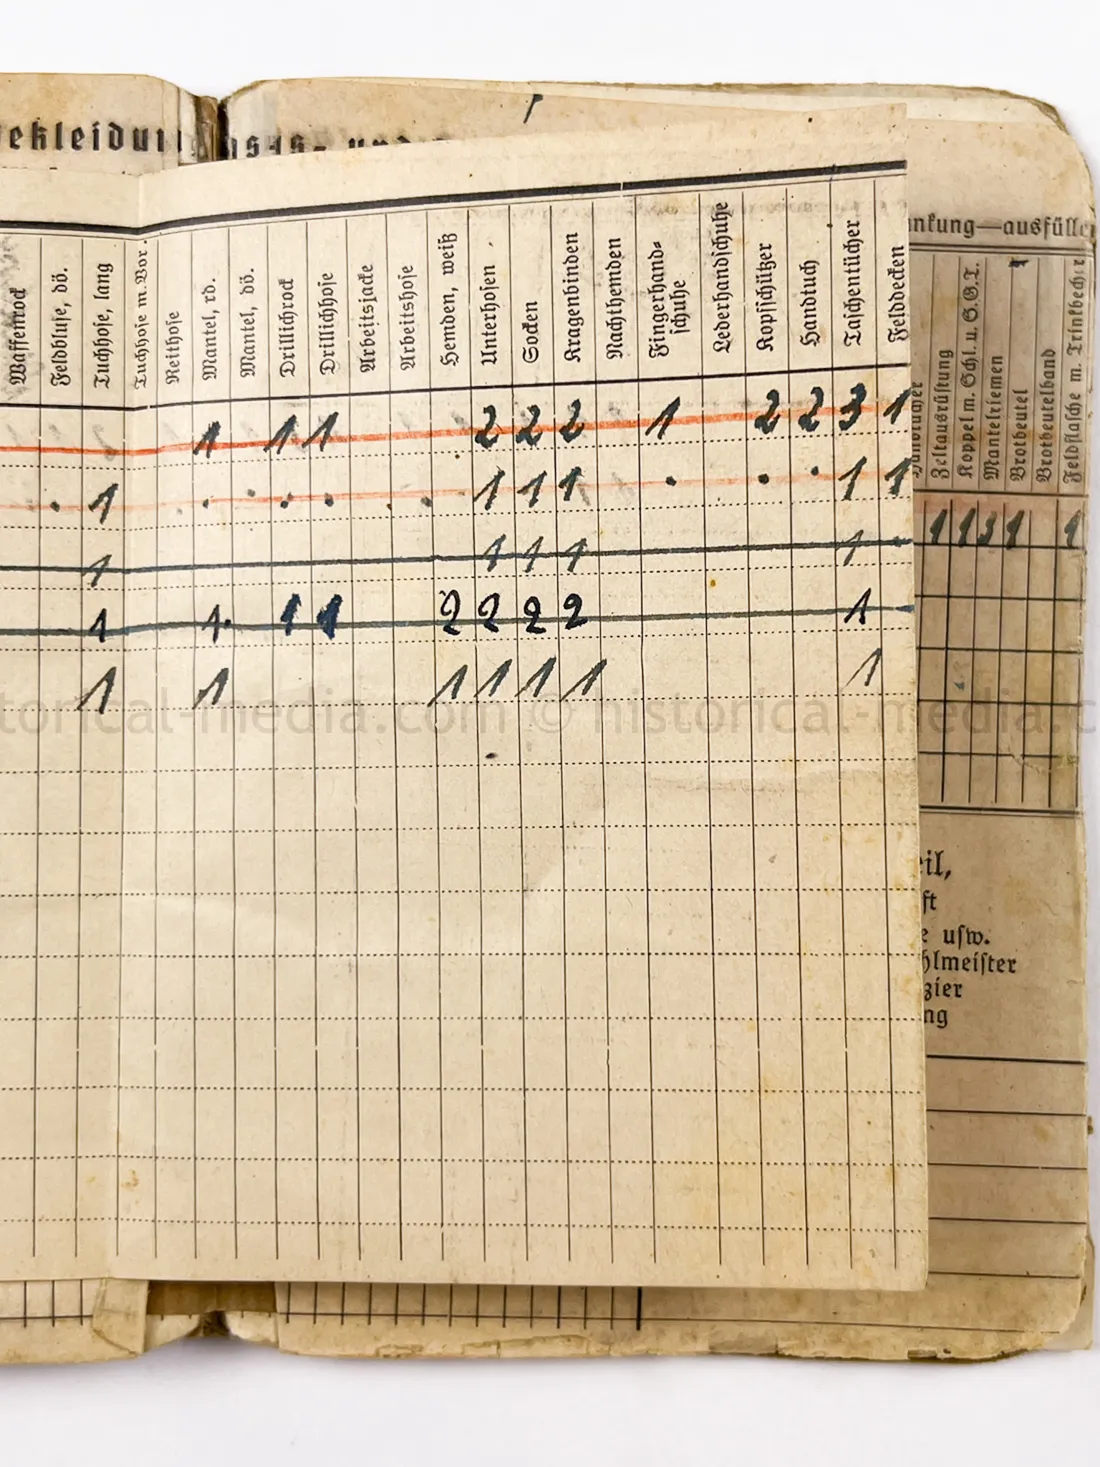 ekleidun
Waffenrock
Feldbluse, dö.
Tuchhose, lang
Tuchhose m. Vor.
Reithose
Mantel, rd.
Mantel, dö.
Drillichrock
Drillichhose
Arbeitsjacke
Arbeitshose
Hemden, weiß
Unterhosen
Socken
Kragenbinden
Nachthemden
Fingerhand-
schuhe
Lederhandschuhe
Kopfschützer
Handtuch
Taschentücher
Felddecken
1 1 1 2 2 2 1 2 2 3 1
1 1 1 1 1 1
1 1 1 1 1
1 1 1 1 2 2 2 2 1
1 1 1 1 1 1 1
nkung—ausfülle
Zeltausrüstung
Koppel m. Schl. u. S.G.T.
Mantelriemen
Brotbeutel
Brotbeutelband
Feldflasche m. Trinkbecher
1 1 3 1 1
eil,
ft
e usw.
hlmeister
zier
ng
torical-media.com © historical-media.c